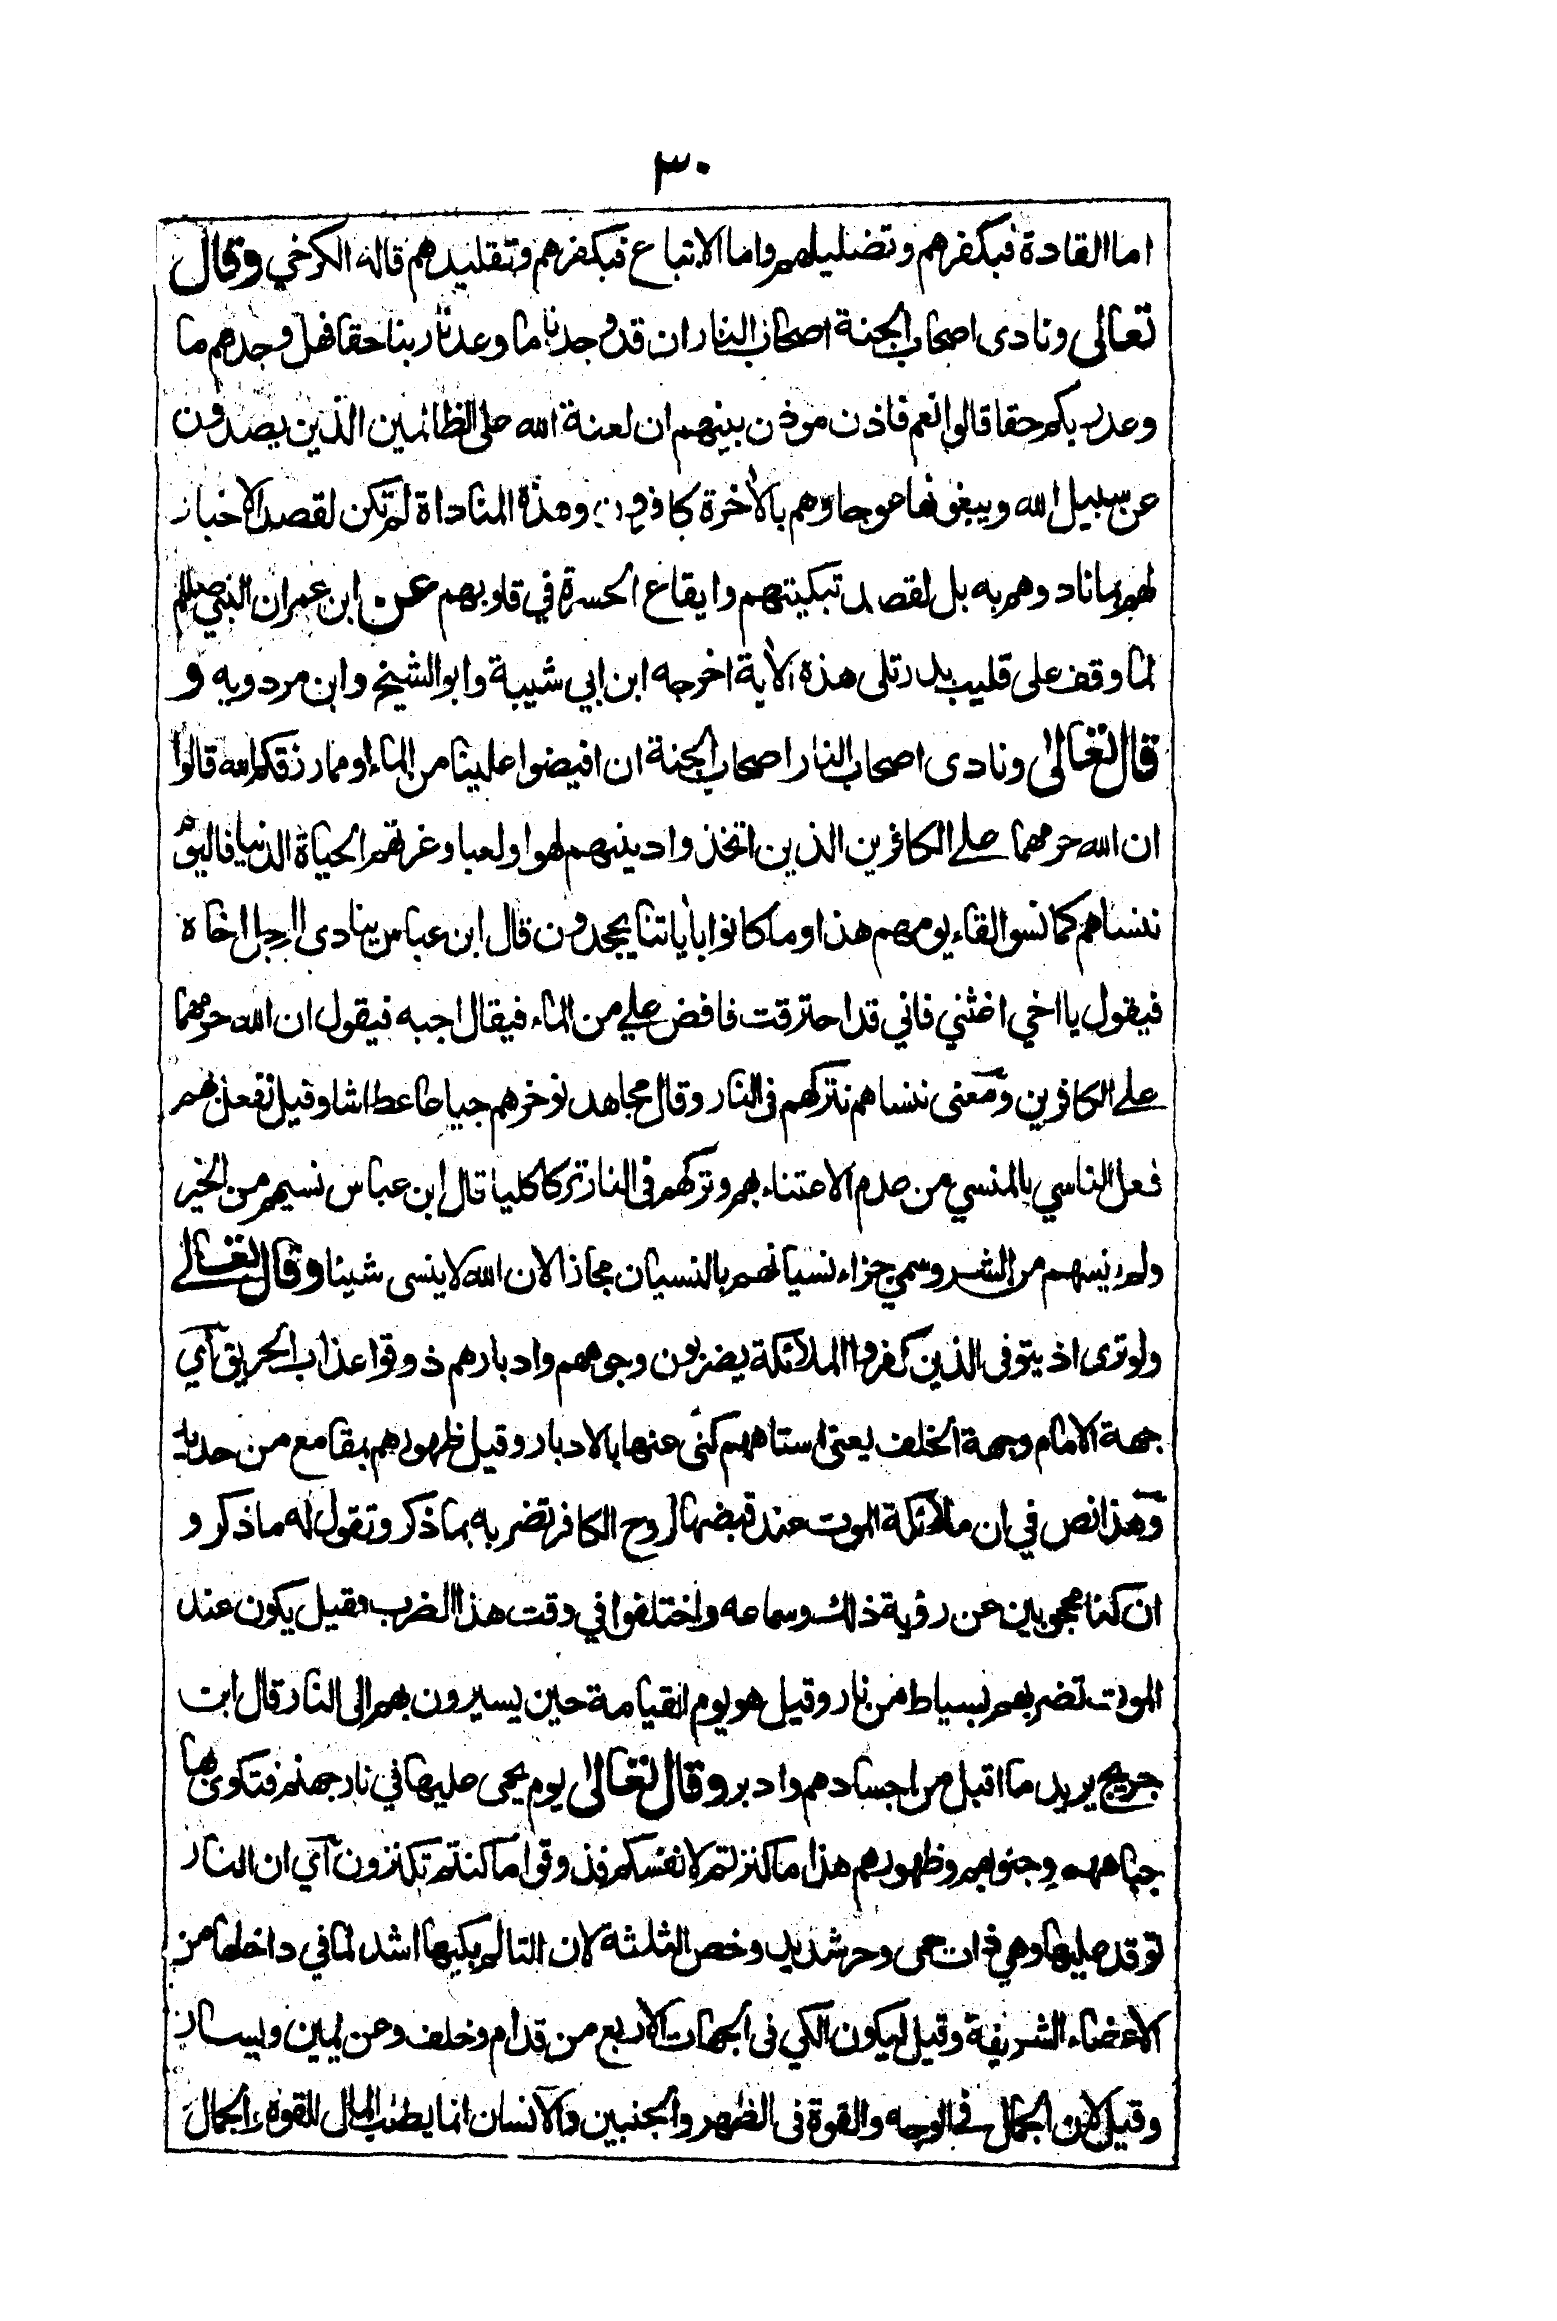 ٣٠
اما القادة فبكفرهم وتضليلهم واما الاتباع فبكفرهم وتقليدهم قاله الكرخي وقال
تعالى ونادى اصحاب الجنة اصحاب النار ان قد وجدنا ما وعدنا ربنا حقا فهل وجدتم ما
وعد ربكم حقا قالوا نعم فاذن موذن بينهم ان لعنة الله على الظالمين الذين يصدون
عن سبيل الله ويبغونها عوجا وهم بالاخرة كافرون وهذه المناداة لم تكن لقصد الاخبار
لهم بما نادوهم به بل لقصد تبكيتهم وايقاع الحسرة في قلوبهم عن ابن عمر ان النبي صللم
لما وقف على قليب بدر تلى هذه الاية اخرجه ابن ابي شيبة وابو الشيخ وابن مردويه و
قال تعالى ونادى اصحاب النار اصحاب الجنة ان افيضوا علينا من الماء او مما رزقكم الله قالوا
ان الله حرمهما على الكافرين الذين اتخذوا دينهم لهوا ولعبا وغرتهم الحياة الدنيا فاليوم
ننساهم كما نسوا لقاء يومهم هذا وما كانوا بأياتنا يجحدون قال ابن عباس ينادى الرجل اخاه
فيقول يا اخي اغثني فاني قد احترقت فافض علي من الماء فيقال اجبه فيقول ان الله حرمهما
على الكافرين ومعنى ننساهم نتركهم فى النار وقال مجاهد نوخرهم جياعا عطاشا وقيل نفعل بهم
فعل الناسي بالمنسي من عدم الاعتناء بهم وتركهم فى النار تركا كليا قال ابن عباس نسيهم من الخير
ولم ينسهم من الشر وسمي جزاء نسيانهم بالنسيان مجازا لان الله لا ينسى شيئا وقال تعالى
ولو ترى اذ يتوفى الذين كفروا الملائكة يضربون وجوههم وادبارهم ذوقوا عذاب الحريق اي
جهة الامام وجهة الخلف يعنى استاههم كنى عنها بالادبار وقيل ظهورهم بمقامع من حديد
وهذا نص في ان ملائكة الموت عند قبضها لروح الكافر تضربه بما ذكر وتقول له ما ذكر و
ان كنا محجوبين عن رؤية ذلك وسماعه واختلفوا في وقت هذا الضرب فقيل يكون عند
الموت تضربهم بسياط من نار وقيل هو يوم القيامة حين يسيرون بهم الى النار قال ابن
جريج يريد ما اقبل من اجسادهم وادبر وقال تعالى يوم يحمى عليها في نار جهنم فتكوى بها
جباههم وجنوبهم وظهورهم هذا ما كنزتم لانفسكم فذوقوا ما كنتم تكنزون اي ان النار
توقد عليها وهي ذات حمى وحر شديد وخص الثلثة لان التالم بكيها اشد لما في داخلها من
الاعضاء الشريفة وقيل ليكون الكي فى الجهات الاربع من قدام وخلف وعن يمين ويسار
وقيل لان الجمال في الوجه والقوة فى الظهر والجنبين والانسان انما يطلب المال للقوة والجمال